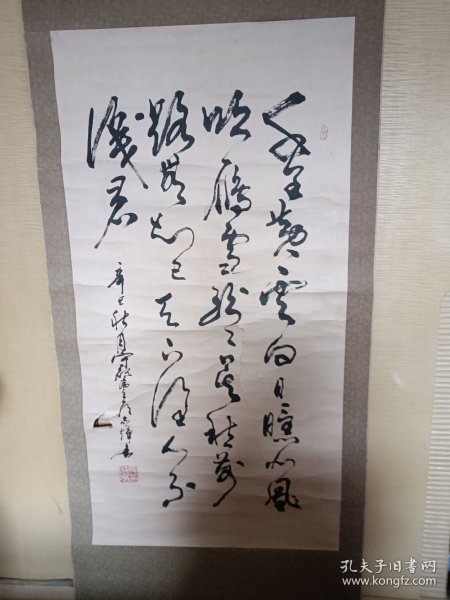 千里黄雲白日曛北風
吹雁雪紛々莫愁前
路無知己天下誰人不
識君
辛巳秋月
孔夫子旧书网
www.kongfz.com